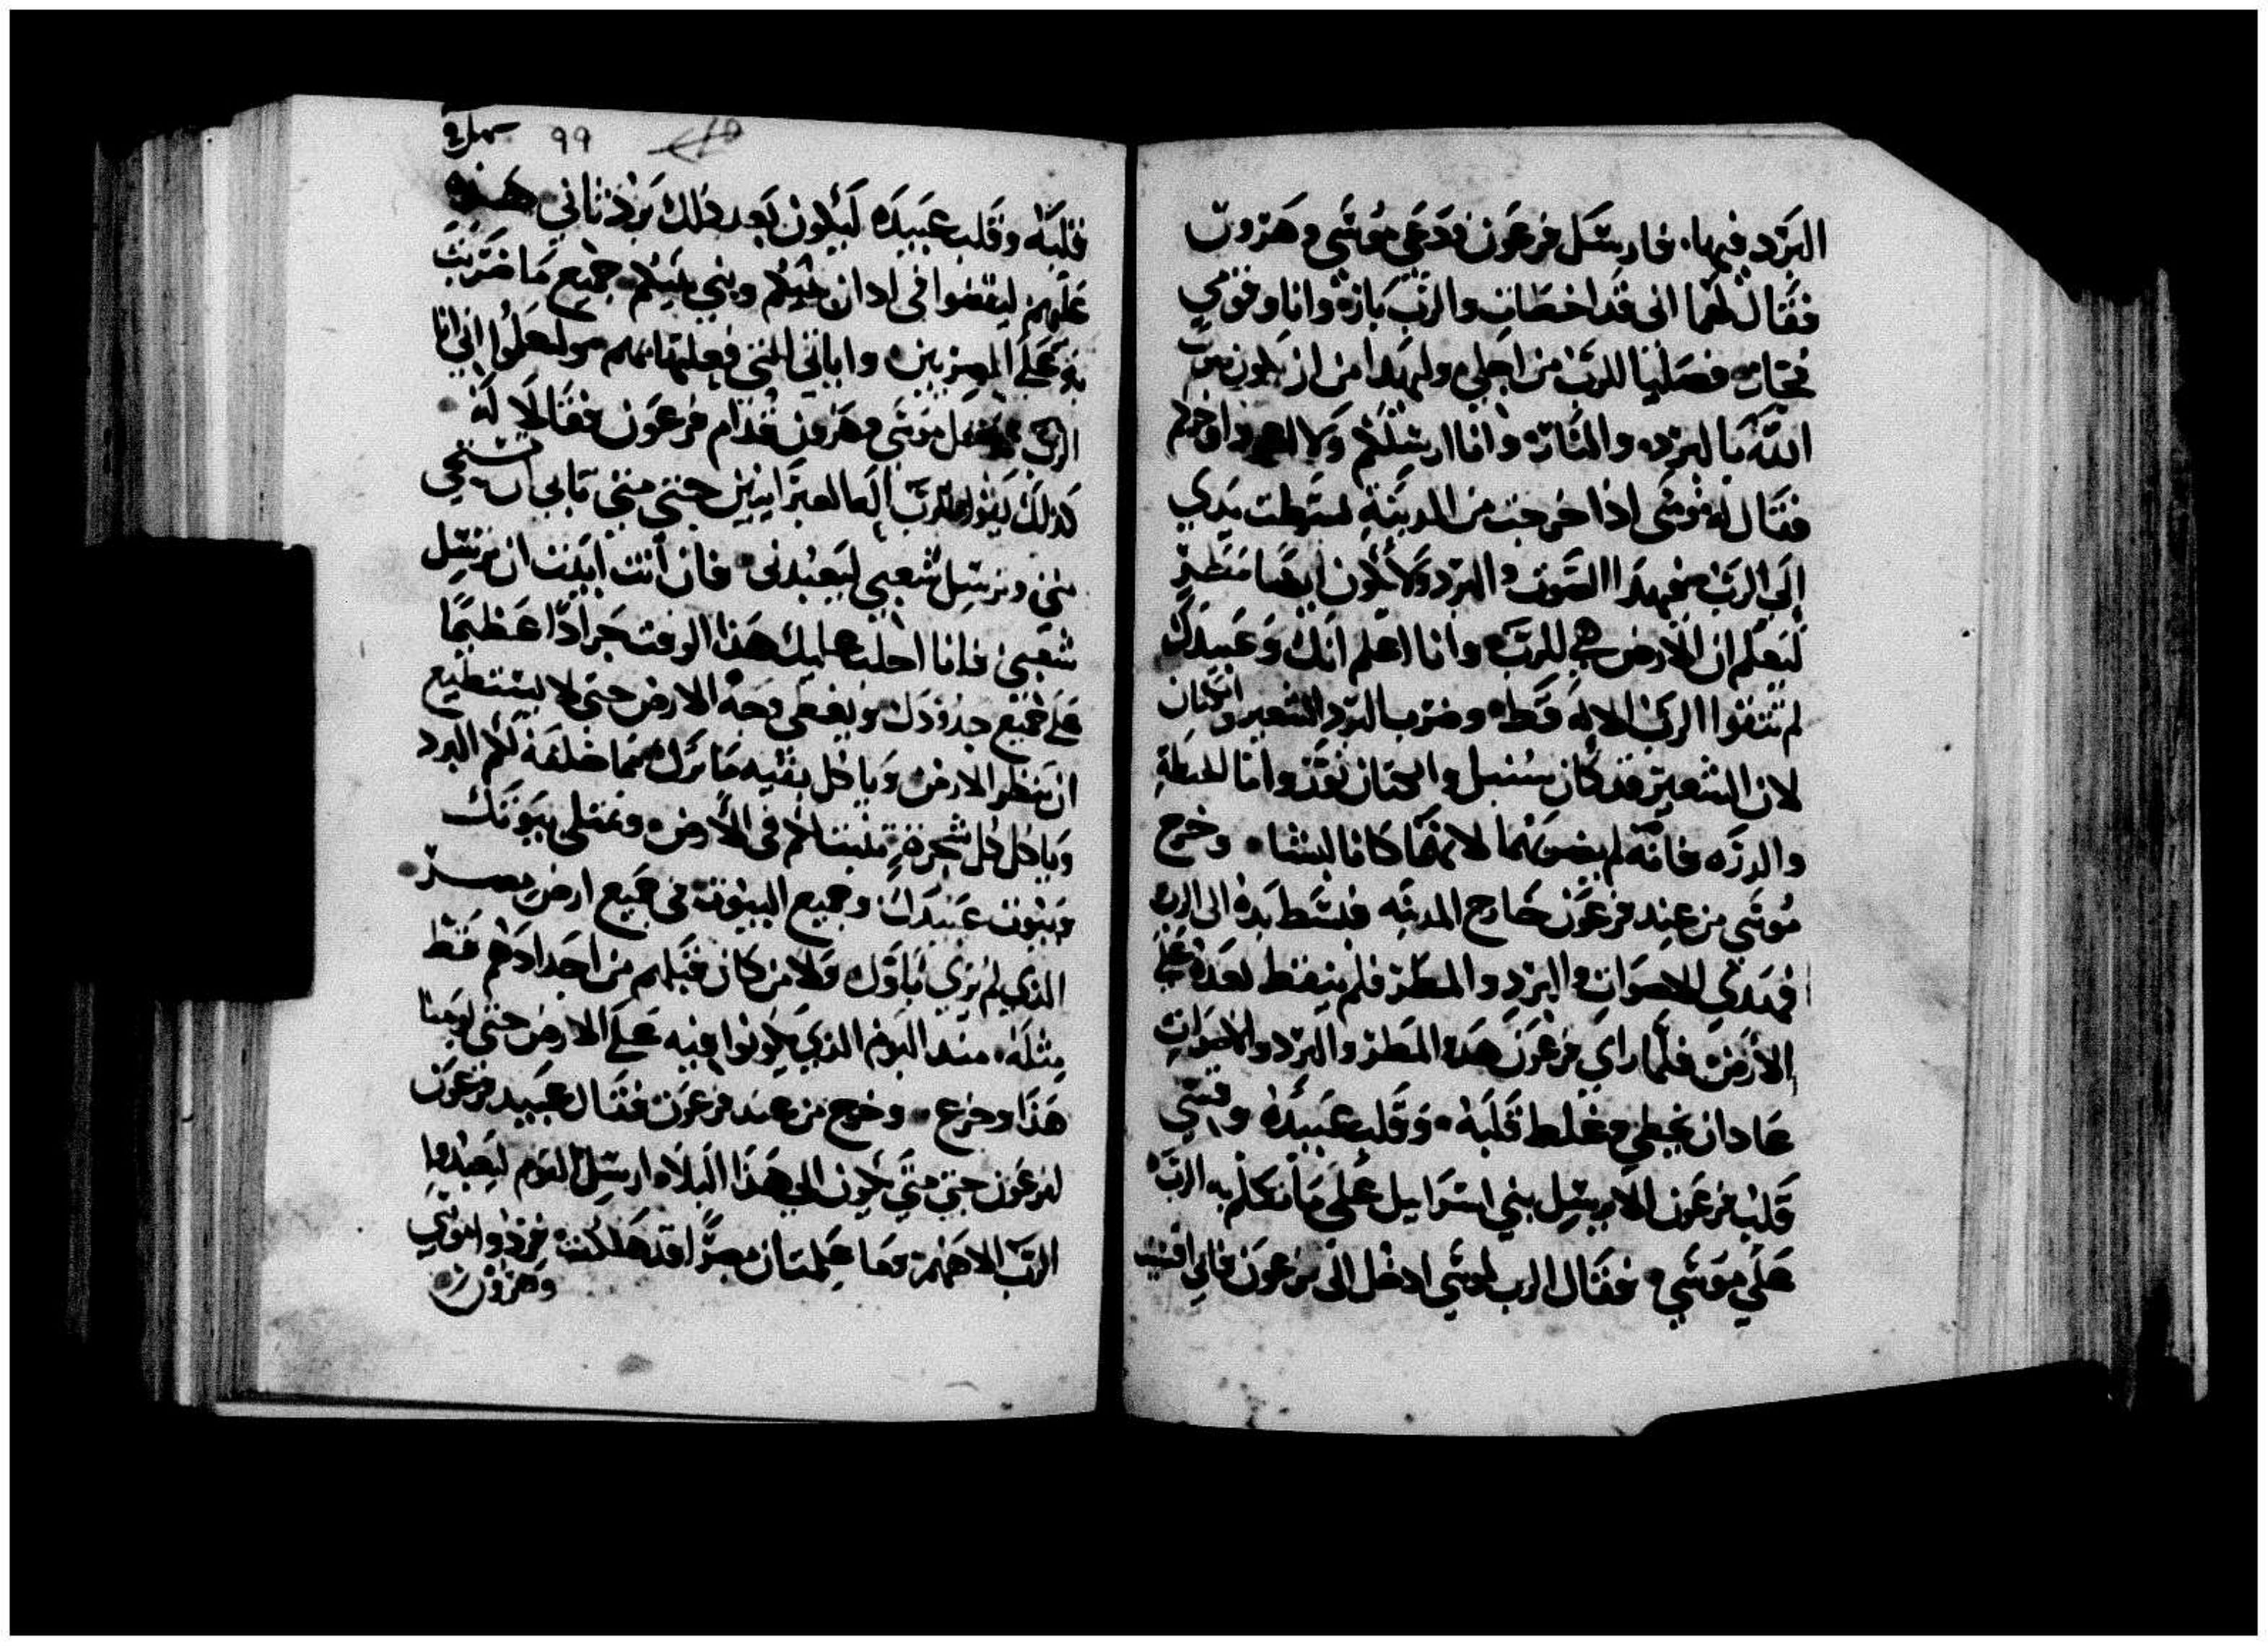 البرد فيها. فارسل فرعون فدعي موسي وهرون
فقال لهما اني قد اخطات والرب بارة وانا وقومي
فجار فصليا للرب من اجلي وليهدا من ان يكون صوت
الله بالبرد والنار وانا ارسلكم ولا
فقال له موسي اذا خرجت من المدينة بسطت يدي
الي الرب فيهدا الصوت والبرد ولا يكون ايضا مطر
لتعلم ان الارض هي للرب وانا اعلم انك وعبيدك
لم تتقوا الرب الاله قط وضرب البرد الشعير والكتان
لان الشعير قد كان سنبل والكتان نقد واما الحنطة
والدره فانه لم يضرهما لانهما كانا لبشا وخرج
موسي من عند فرعون خارج المدينه فبسط يده الي الرب
فهدي الاصوات والبرد والمطر فلم ينقط بعده علي
الارض فلما راي فرعون هدو المطر والبرد والاصوات
عاد ان يخطي وغلط قلبه وقلب عبيده وقسي
قلب فرعون الا يرسل بني اسراييل علي ما تكلم به الرب
علي موسي فقال الرب لموسي ادخل الي فرعون فاني اقسيت
٩٩
قلبه وقلب عبيده ليكون بعد ذلك يرد تاتي هذه
عليهم ليقضوا في ادان بنيكم وبني بنيكم جميع ما ضربت
به علي المصريين واياتي التي فعلتها بهم وليعلموا اني انا
الرب فدخل موسي وهرون قدام فرعون فقالا له
كذلك يقول الرب اله العبرانيين حتي متي تابي ان تستحي
مني وترسل شعبي ليعبدني فان انت ابيت ان ترسل
شعبي فانا اجلب عليك هذا الوقت جرادا عظيما
علي جميع حدودك ويغطي وجه الارض حتي لا يستطيع
ان ينظر الارض وياكل بقيه ما ترك مما خلفه لكم البرد
وياكل كل شجرة تنبت لكم في الارض وتمتلي بيوتك
وبيوت عبيدك وجميع البيوت في جميع ارض مصر
الذي لم يري اباوك ولا من كان قبلهم من اجدادهم قط
مثله. مند اليوم الذي يكونوا فيه علي الارض حتي يومنا
هذا وخرج من عند فرعون فقال عبيد فرعون
لفرعون حتي متي يكون الي هذا البلاء ارسل القوم ليعبدوا
الرب الاههم وما علمت ان مصر قد هلكت فردوا موسي
وهرون